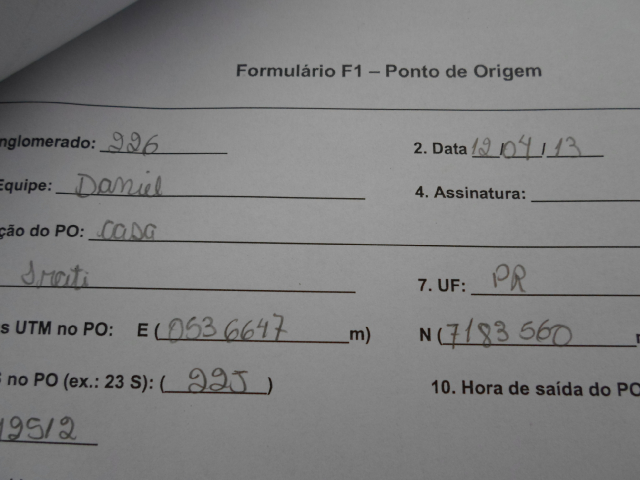 Formulário F1 – Ponto de Origem
nglomerado: 226 2. Data 12/04/13
Equipe: Daniel 4. Assinatura:
ção do PO: casa
Irati 7. UF: PR
s UTM no PO: E (0536647 m) N (7183560
no PO (ex.: 23 S): (22J) 10. Hora de saída do PO